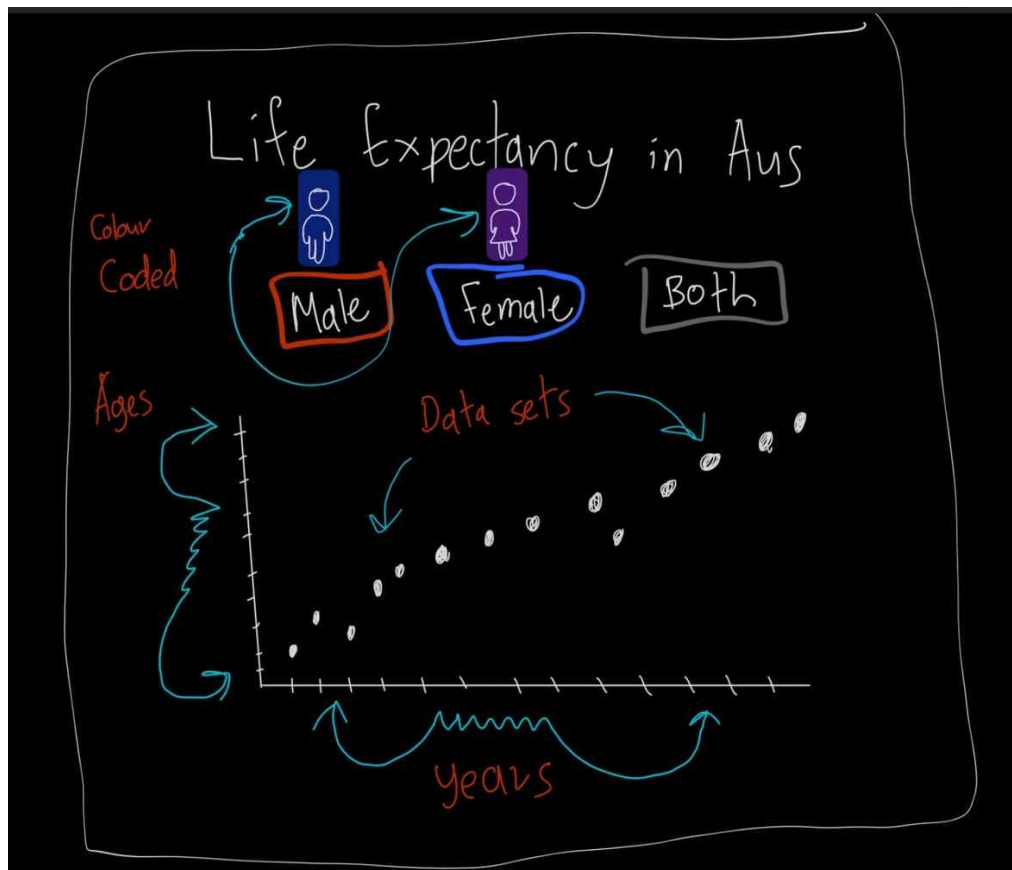 Life Expectancy in Aus
Colour
Coded
Male
Female
Both
Ages
Data sets
years